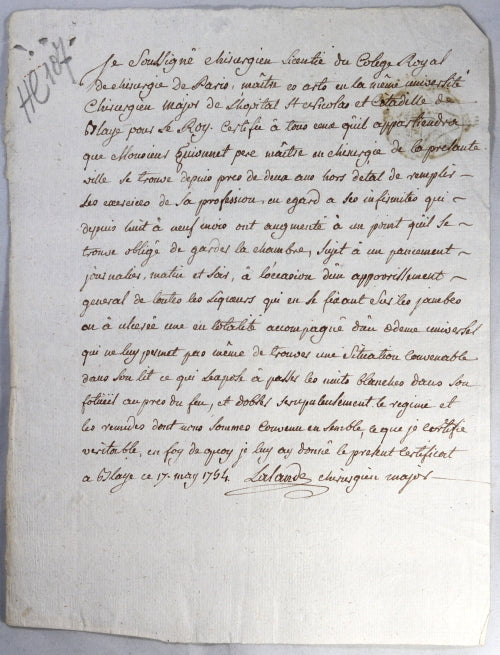 HC107
Je Soussigné chirurgien licentié du Colege Royal
de chirurgie de Paris, maître es arts en la même université
Chirurgien major de Lhopital St Nicolas et Citadelle de
Blaye pour le Roy. Certifie à tous ceux qu'il appartiendra
que Monsieur pere maître en chirurgie de la presante
ville se trouve depuis pres de deux ans hors detat de remplir
les exercices de sa profession, en egard a ses infirmités qui
depuis huit à neuf mois ont augmenté à un point qu'il se
trouve obligé de garder la chambre, sujet à un pancement
journalier, matin et soir, à l'occasion d'un appovrissement
general de toutes les liqueurs qui en se fixant sur les jambes
en à ulcerée une en totalité accompagné d'un œdeme universel
qui ne luy permet pas même de trouver une situation convenable
dans son lit ce qui à passer les nuits blanches dans son
foteüil au pres du feu, et dobserver scrupuleusement le regime et
les remedes dont nous sommes convenu ensemble, ce que je certifie
veritable, en foy de quoy je luy ay donné le present certificat
a Blaye ce 17. may 1754. Lalande chirurgien major